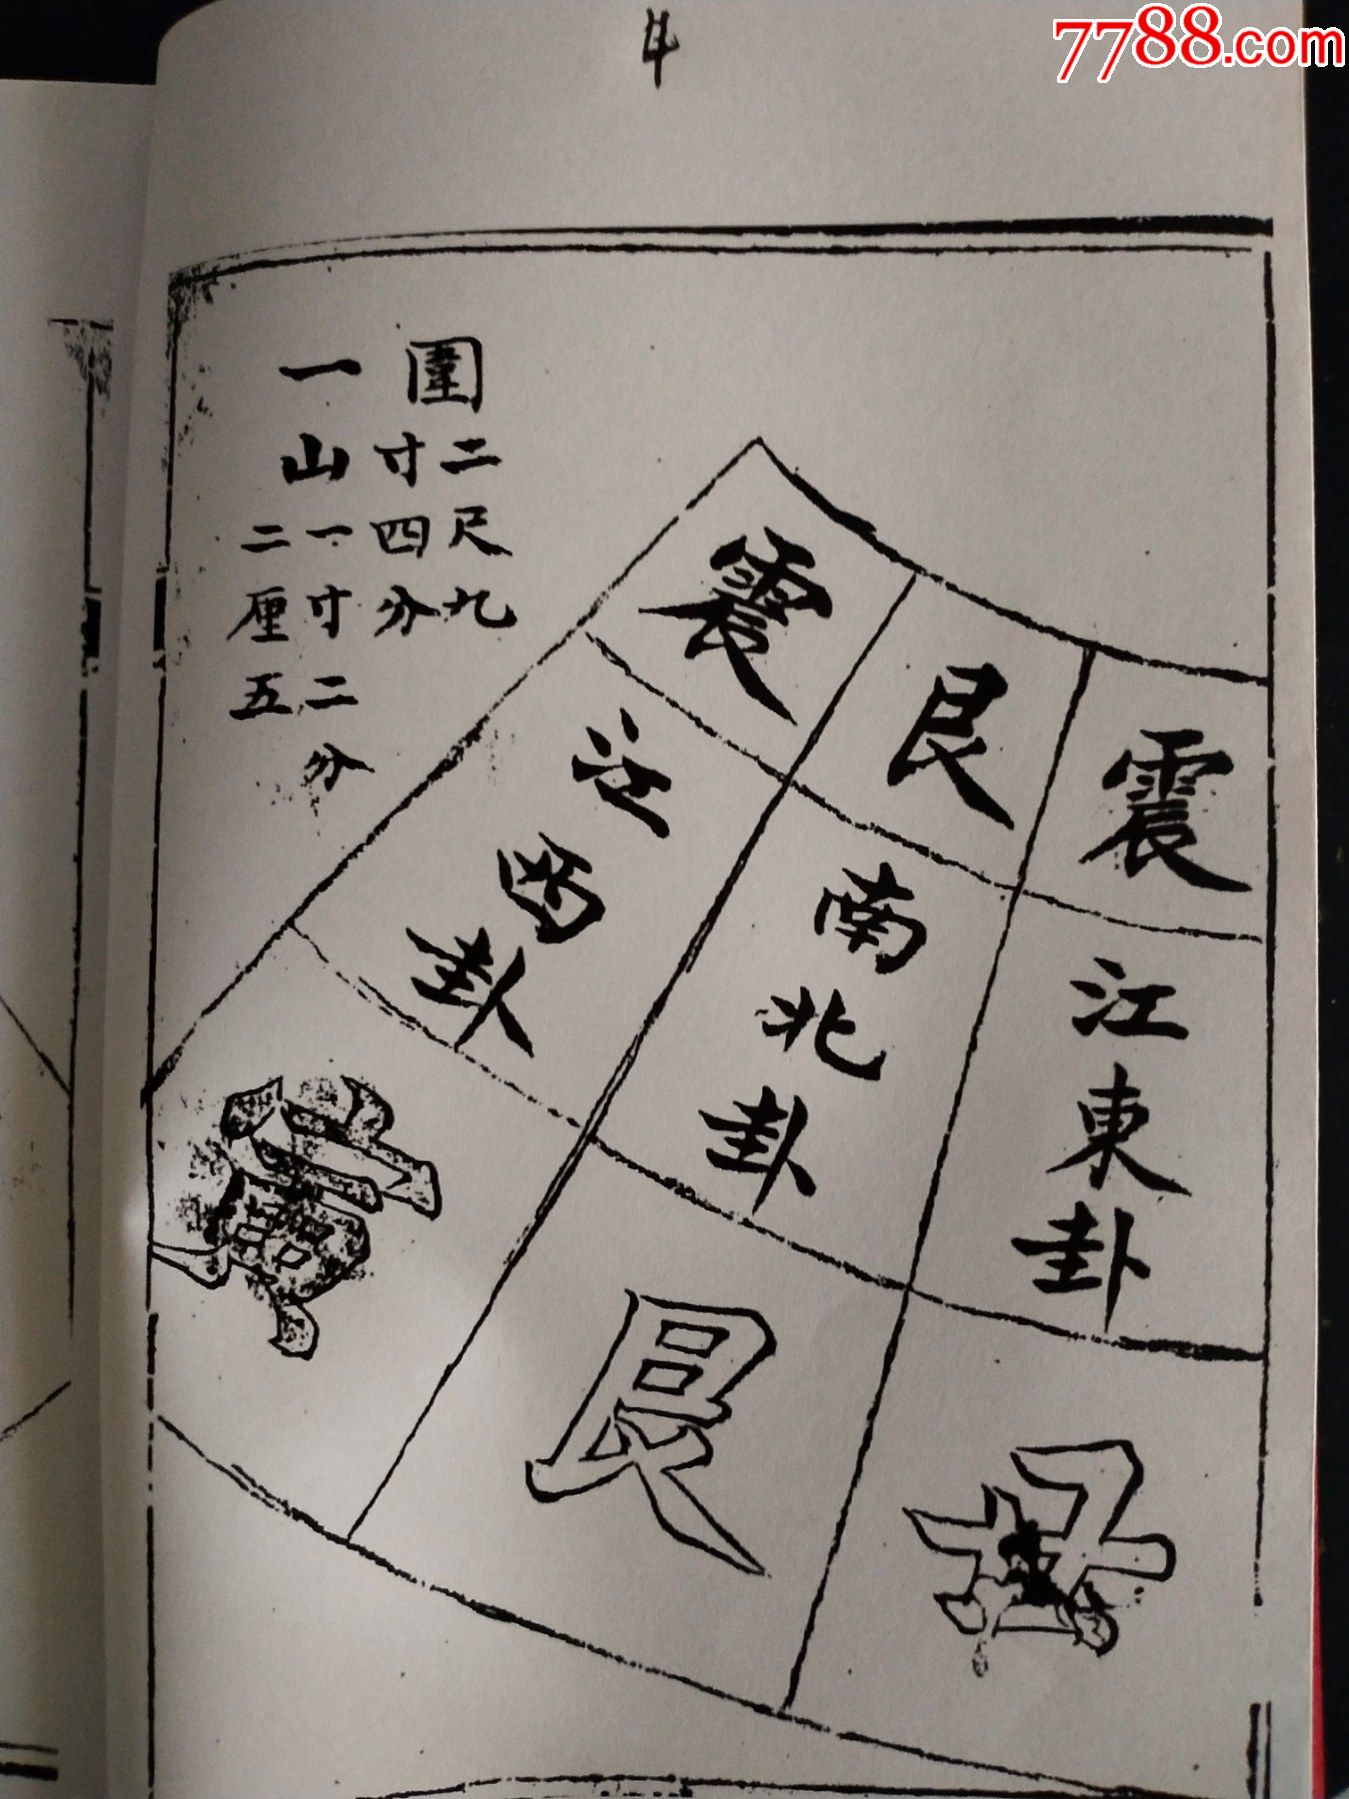 7788.com
圍二尺九
寸四分
一山一寸二分
二厘五
震
江東卦
丑
艮
南北卦
艮
震
江西卦
寅